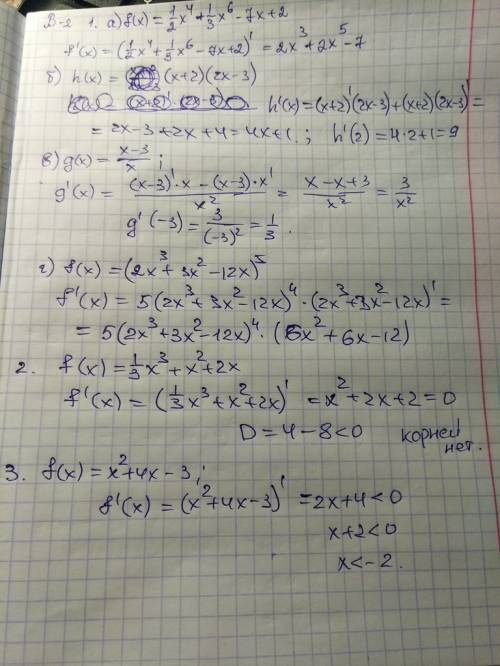 В-2 1. а) f(x) = 1/2 x⁴ + 1/3 x⁶ - 7x + 2
f'(x) = (1/2 x⁴ + 1/3 x⁶ - 7x + 2)' = 2x³ + 2x⁵ - 7
б) h(x) = (x+2)(2x-3)
h'(x) = (x+2)'(2x-3) + (x+2)(2x-3)' =
= 2x-3+2x+4 = 4x+1. ; h'(2) = 4·2+1 = 9
в) g(x) = (x-3)/x ;
g'(x) = ((x-3)'·x - (x-3)·x')/x² = (x-x+3)/x² = 3/x²
g'(-3) = 3/(-3)² = 1/3 .
г) f(x) = (2x³ + 3x² - 12x)⁵
f'(x) = 5(2x³ + 3x² - 12x)⁴ · (2x³ + 3x² - 12x)' =
= 5(2x³ + 3x² - 12x)⁴ · (6x² + 6x - 12)
2. f(x) = 1/3 x³ + x² + 2x
f'(x) = (1/3 x³ + x² + 2x)' = x² + 2x + 2 = 0
D = 4 - 8 < 0 корней
нет.
3. f(x) = x² + 4x - 3 ;
f'(x) = (x² + 4x - 3)' = 2x + 4 < 0
x + 2 < 0
x < -2.